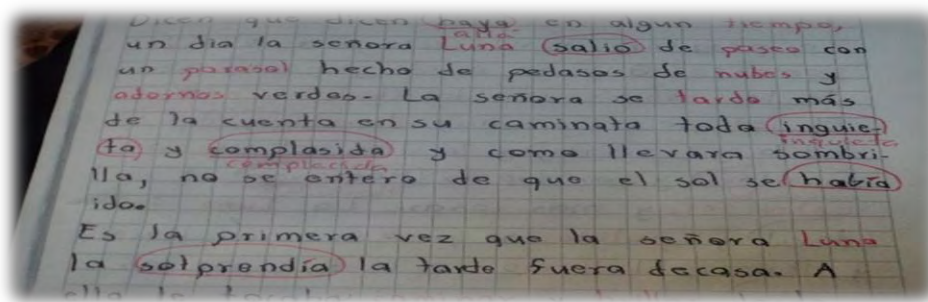 Dicen que dicen haya en algun tiempo,
alla
un dia la señora Luna salio de paseo con
un parasol hecho de pedasos de nubes y
adornos verdes. La señora se tardo más
de la cuenta en su caminata toda inguie-
inquieta
ta y complasida y como llevara sombri-
complacida
lla, no se entero de que el sol se habia
ido.
Es la primera vez que la señora Luna
la solprendía la tarde fuera decasa. A